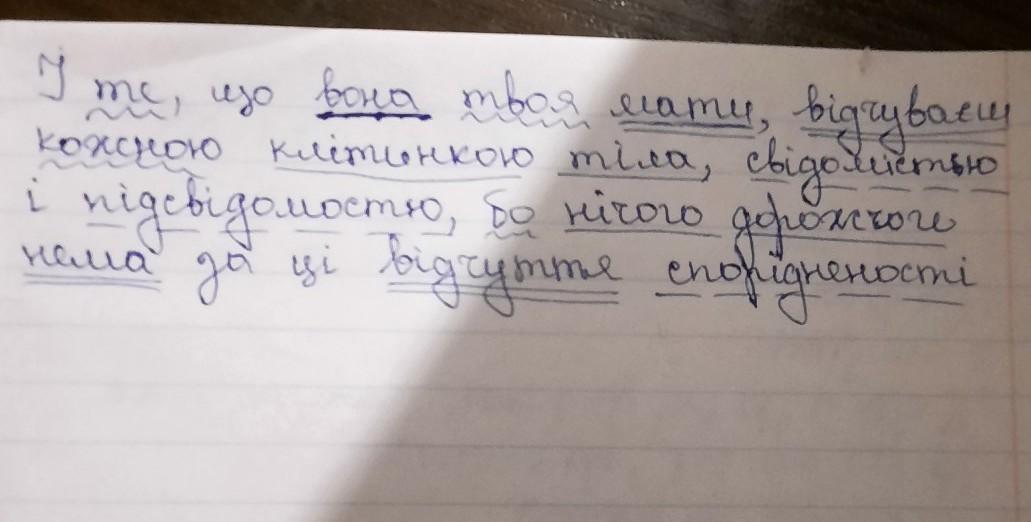 І те, що вона твоя мати, відчуваєш
кожною клітинкою тіла, свідомістью
і підсвідомостю, бо нічого дорожчого
нема за ці відчуття спорідненості